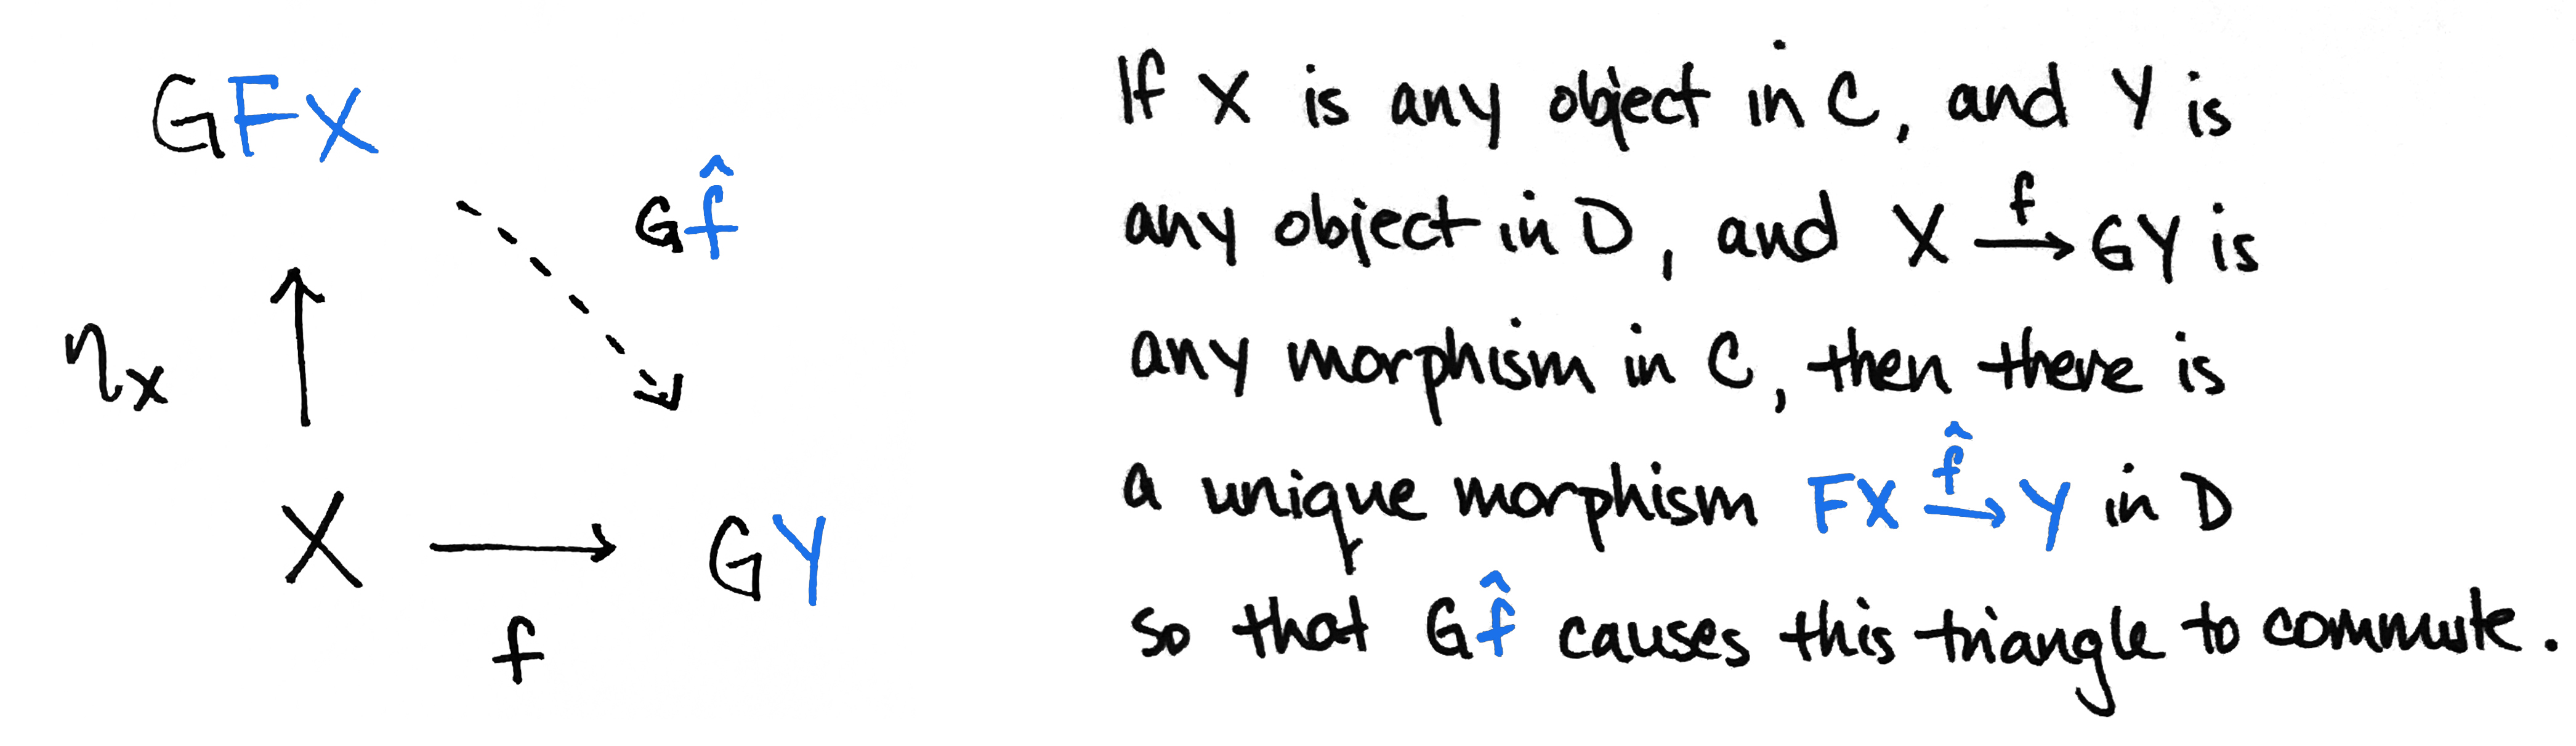 GFX
Gf̂
ηx
X → GY
f
If X is any object in C, and Y is
any object in D, and X —f→ GY is
any morphism in C, then there is
a unique morphism FX —f̂→ Y in D
so that Gf̂ causes this triangle to commute.